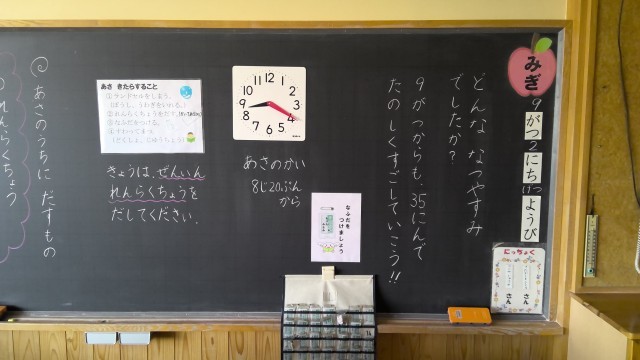 みぎ
9がつ2にちげつようび
どんな なつやすみ
でしたか?
9がつからも、35にんで
たのしくすごしていこう!!
にっちょく
さん
さん
なふだを
つけましょう
12 1 2 3 4 5 6 7 8 9 10 11
あさのかい
8じ20ぷん
から
あさ きたらすること
①ランドセルをしまう。
②れんらくちょうをだす。
③なふだをつける。
④すわってまつ
きょうは、ぜんいん
れんらくちょうを
だしてください。
あさのうちに だすもの
れんらくちょう